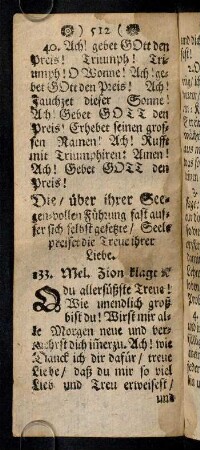 ) 512 (
40. Ach! gebet GOtt den
Preis! Triumph! Tri-
umph! O Wonne! Ach! ge-
bet GOtt den Preis! Ach!
Jauchzet dieser Sonne!
Ach! Gebet GOTT den
Preis! Erhebet seinen gros-
sen Namen! Ach! Rufft
mit Triumphiren: Amen!
Ach! Gebet GOTT den
Preis!
Die / über ihrer See-
gen-vollen Führung fast aus-
ser sich selbst gesetzte / Seele
preiset die Treue ihrer
Liebe.
133. Mel. Zion klagt ꝛc
O du allersüßste Treue!
Wie unendlich groß
bist du! Wirst mir al-
le Morgen neue und ver-
mehrst dich im̃erzu. Ach! wie
Danck ich dir dafür / treue
Liebe / daß du mir so viel
Lieb und Treu erweisest /
und